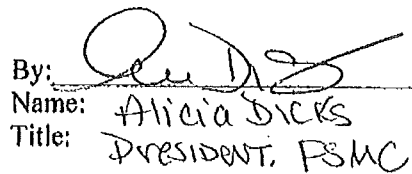 By:
Name: Alicia Dicks
Title: President, PSMC